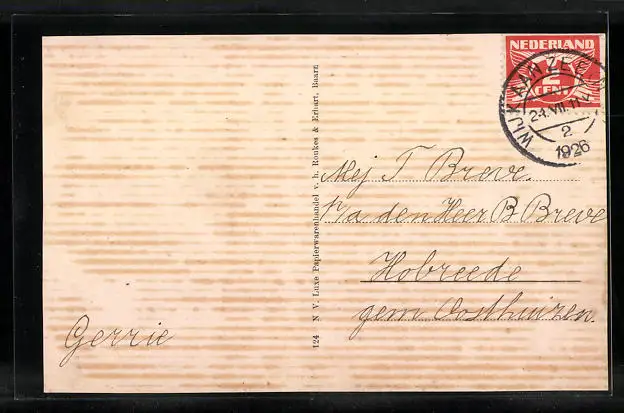 NEDERLAND
2
CENT
WIJK AAN ZEE
24.VII.11V
2
1926
Mej T Breve.
p/a den Heer B Breve
Hobreede
gem Oosthuizen.
Gerrie
124 N. V. Luxe Papierwarenhandel v. h. Roukes & Erhart, Baarn